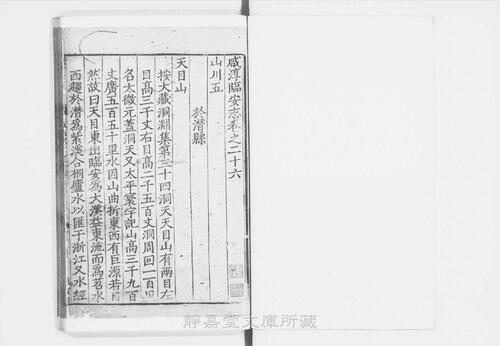 咸淳臨安志卷之二十六
山川五
於潛縣
天目山
按大藏洞淵集第三十四洞天天目山有兩目左
目高三千丈右目高二千五百丈洞周回一百里
名太微元蓋洞天又太平寰宇記山高三千九百
丈廣五百五十里水因山曲折東西有巨源若目
然故曰天目東出臨安爲大溪益東流而爲苕水
西趨於潛爲紫溪合桐廬水以匯于浙江又水經
靜嘉堂文庫所藏